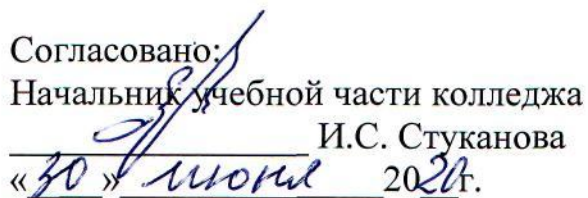 Согласовано:
Начальник учебной части колледжа
И.С. Стуканова
«30» июня 2020г.